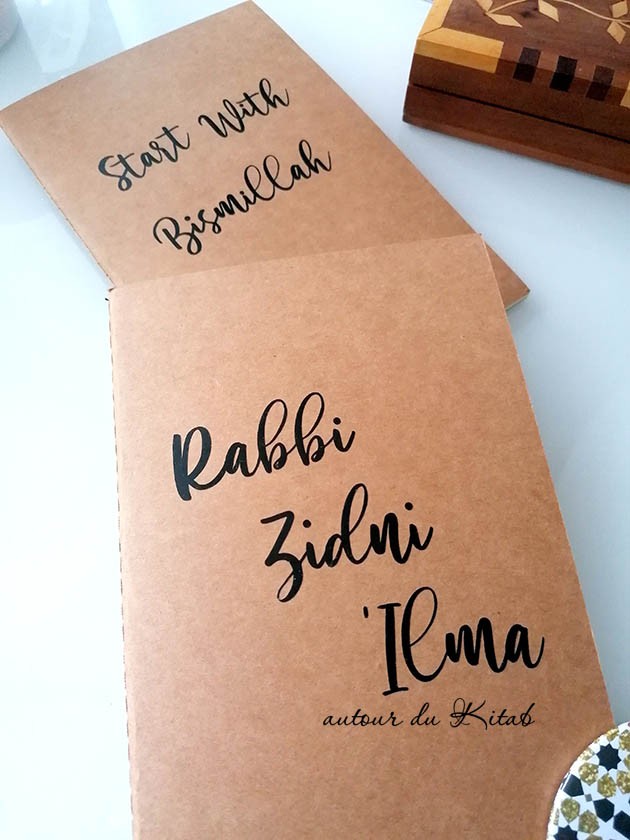 Start With
Bismillah
Rabbi
Zidni
'Ilma
autour du Kitab